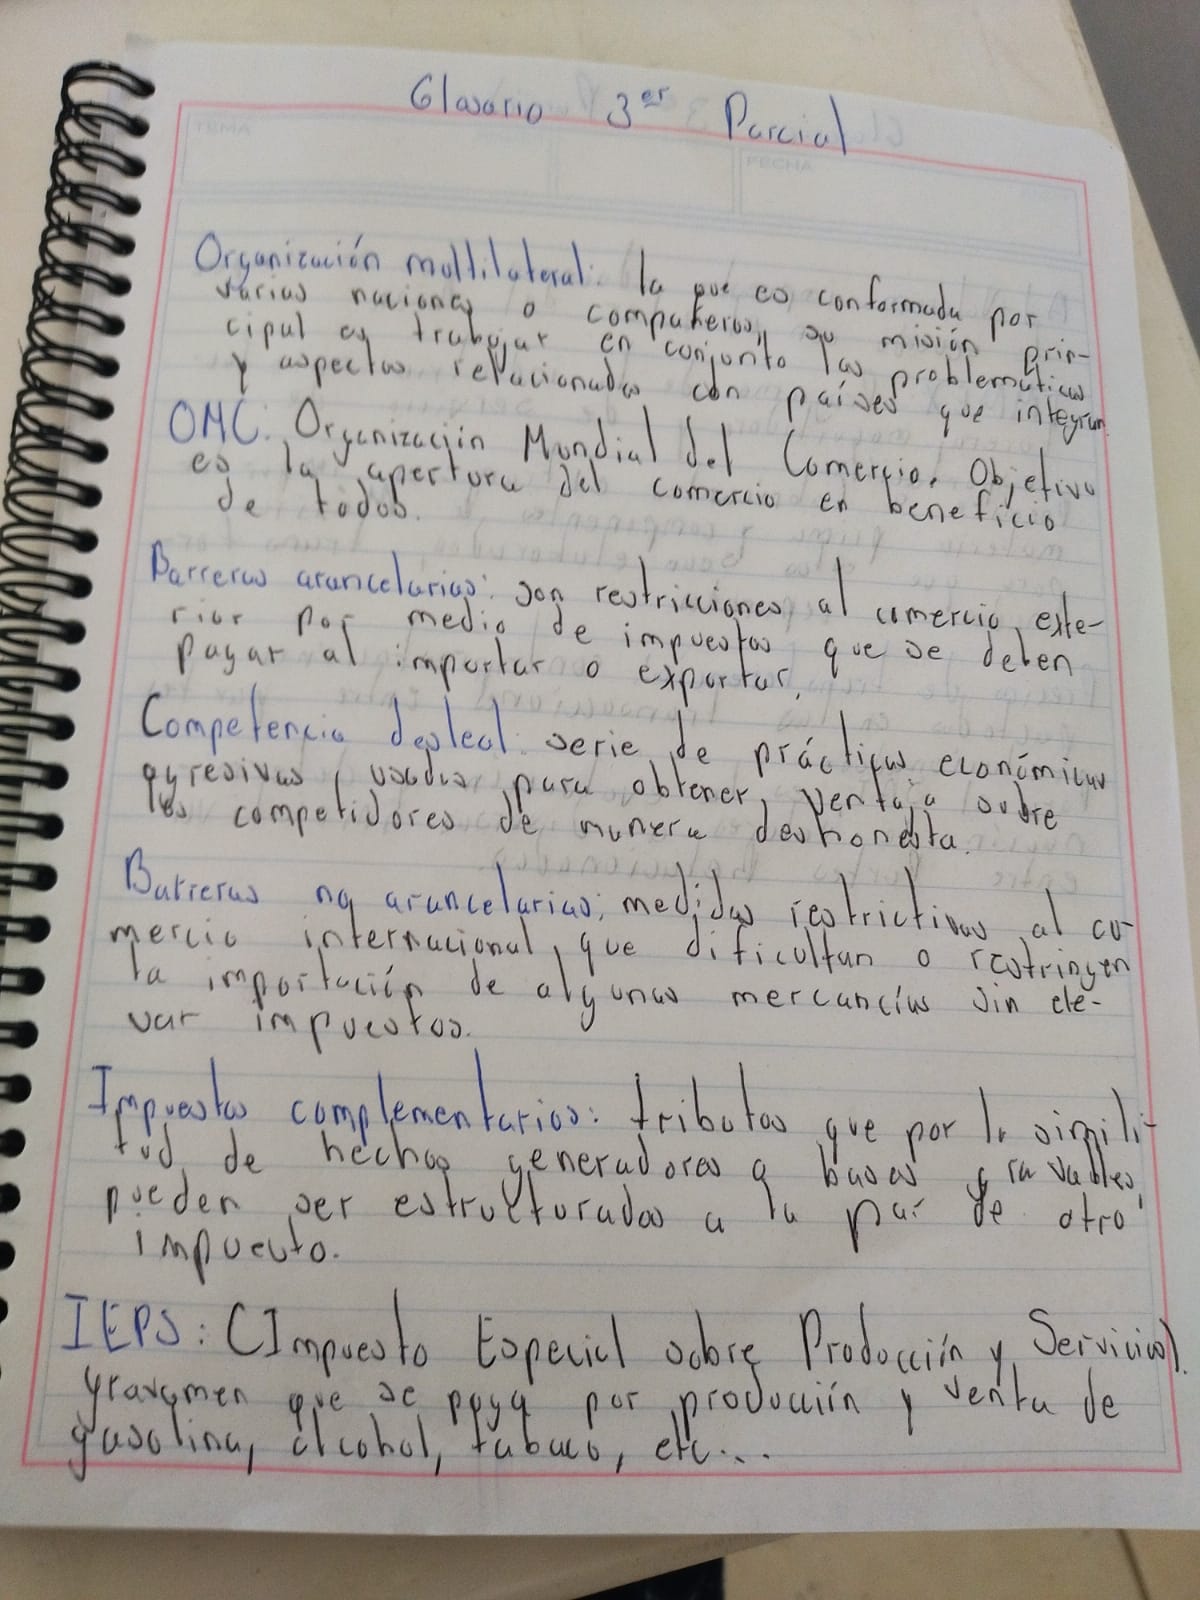 Glosario 3er Parcial
TEMA
FECHA
Organización multilateral: la que es conformada por
varias naciones o compañeros, su misión prin-
cipal es trabajar en conjunto las problemáticas
y aspectos relacionados con países que integran.
OMC: Organización Mundial del Comercio. Objetivo
es la apertura del comercio en beneficio
de todos.
Barreras arancelarias: son restricciones al comercio exte-
rior por medio de impuestos que se deben
pagar al importar o exportar.
Competencia desleal: serie de prácticas económicas
agresivas, usadas para obtener ventaja sobre
los competidores de manera deshonesta.
Barreras no arancelarias: medidas restrictivas al co-
mercio internacional, que dificultan o restringen
la importación de algunas mercancías sin ele-
var impuestos.
Impuestos complementarios: tributos que por la simili-
tud de hechos generadores o bases gravables,
pueden ser estructurados a la par de otro
impuesto.
IEPS: (Impuesto Especial sobre Producción y Servicios).
gravamen que se paga por producción y venta de
gasolina, alcohol, tabaco, etc...